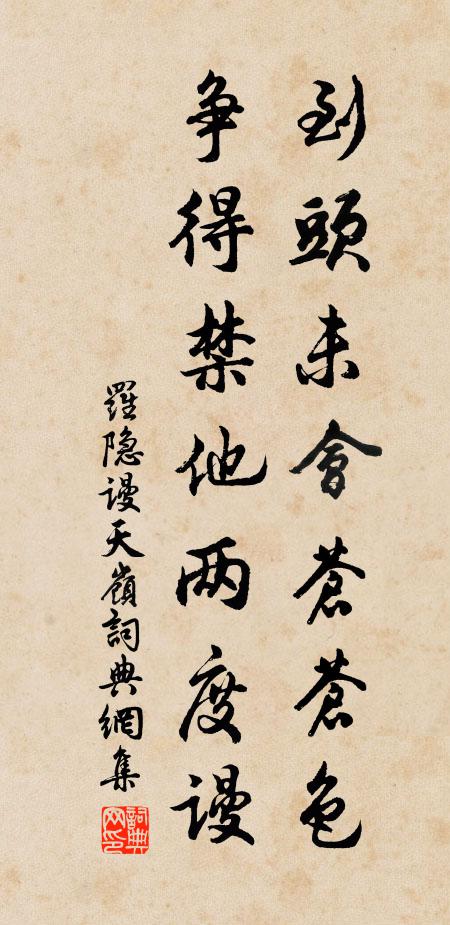 到頭未會蒼蒼色
争得禁他两度謾
羅隐謾天嶺詞典網集
詞典网印